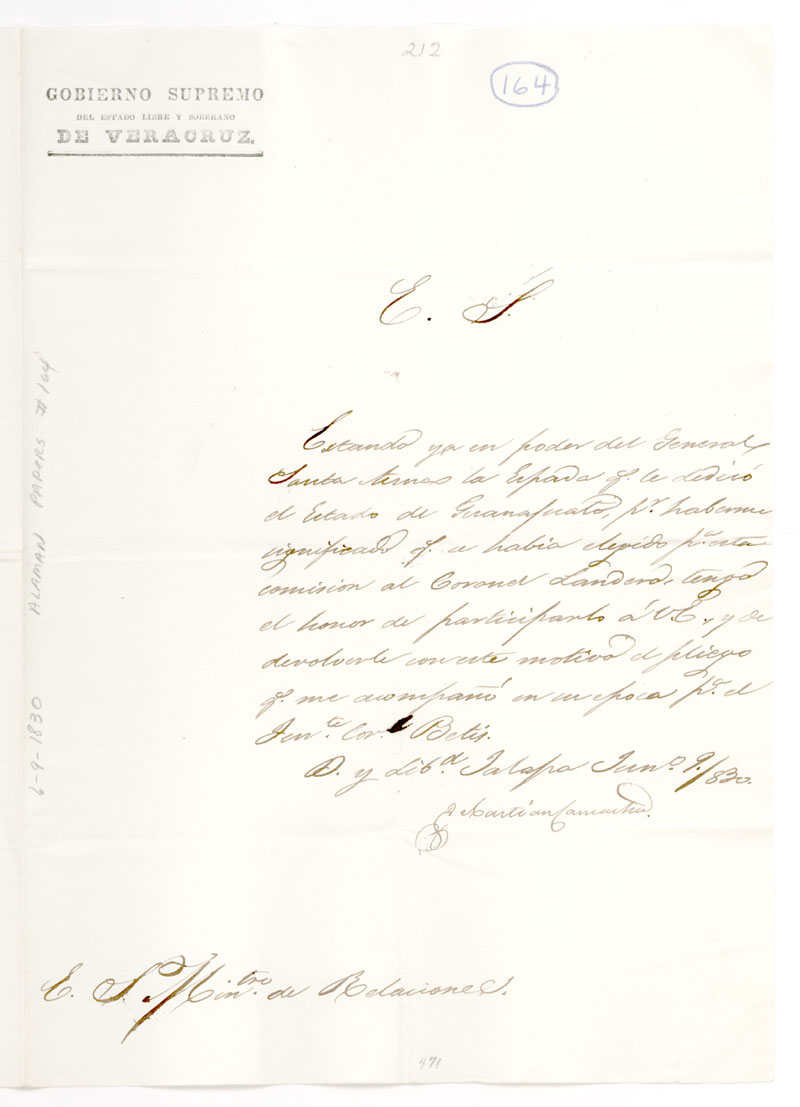 212
164
GOBIERNO SUPREMO
DEL ESTADO LIBRE Y SOBERANO
DE VERACRUZ.
E. S.
Estando ya en poder del General
Santa Anna la Espada q.e le dedicó
el Estado de Guanajuato, p.r haberme
significado q.e se había elegido p.a esta
comision al Coronel Landero, tengo
el honor de participarlo á V.E., y de
devolverle con este motivo el pliego
q.e me acompañó en su epoca p.a el
Ten.te Cor.l Betis.
D. y Lib.d Jalapa Jun.o 9/830.
Sebastián Camacho.
E. S. Min.tro de Relaciones.
471
6-9-1830 ALAMAN PAPERS # 164